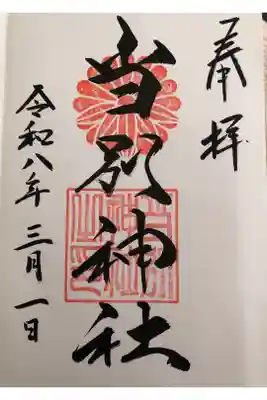 奉拝
当別神社
令和八年三月一日